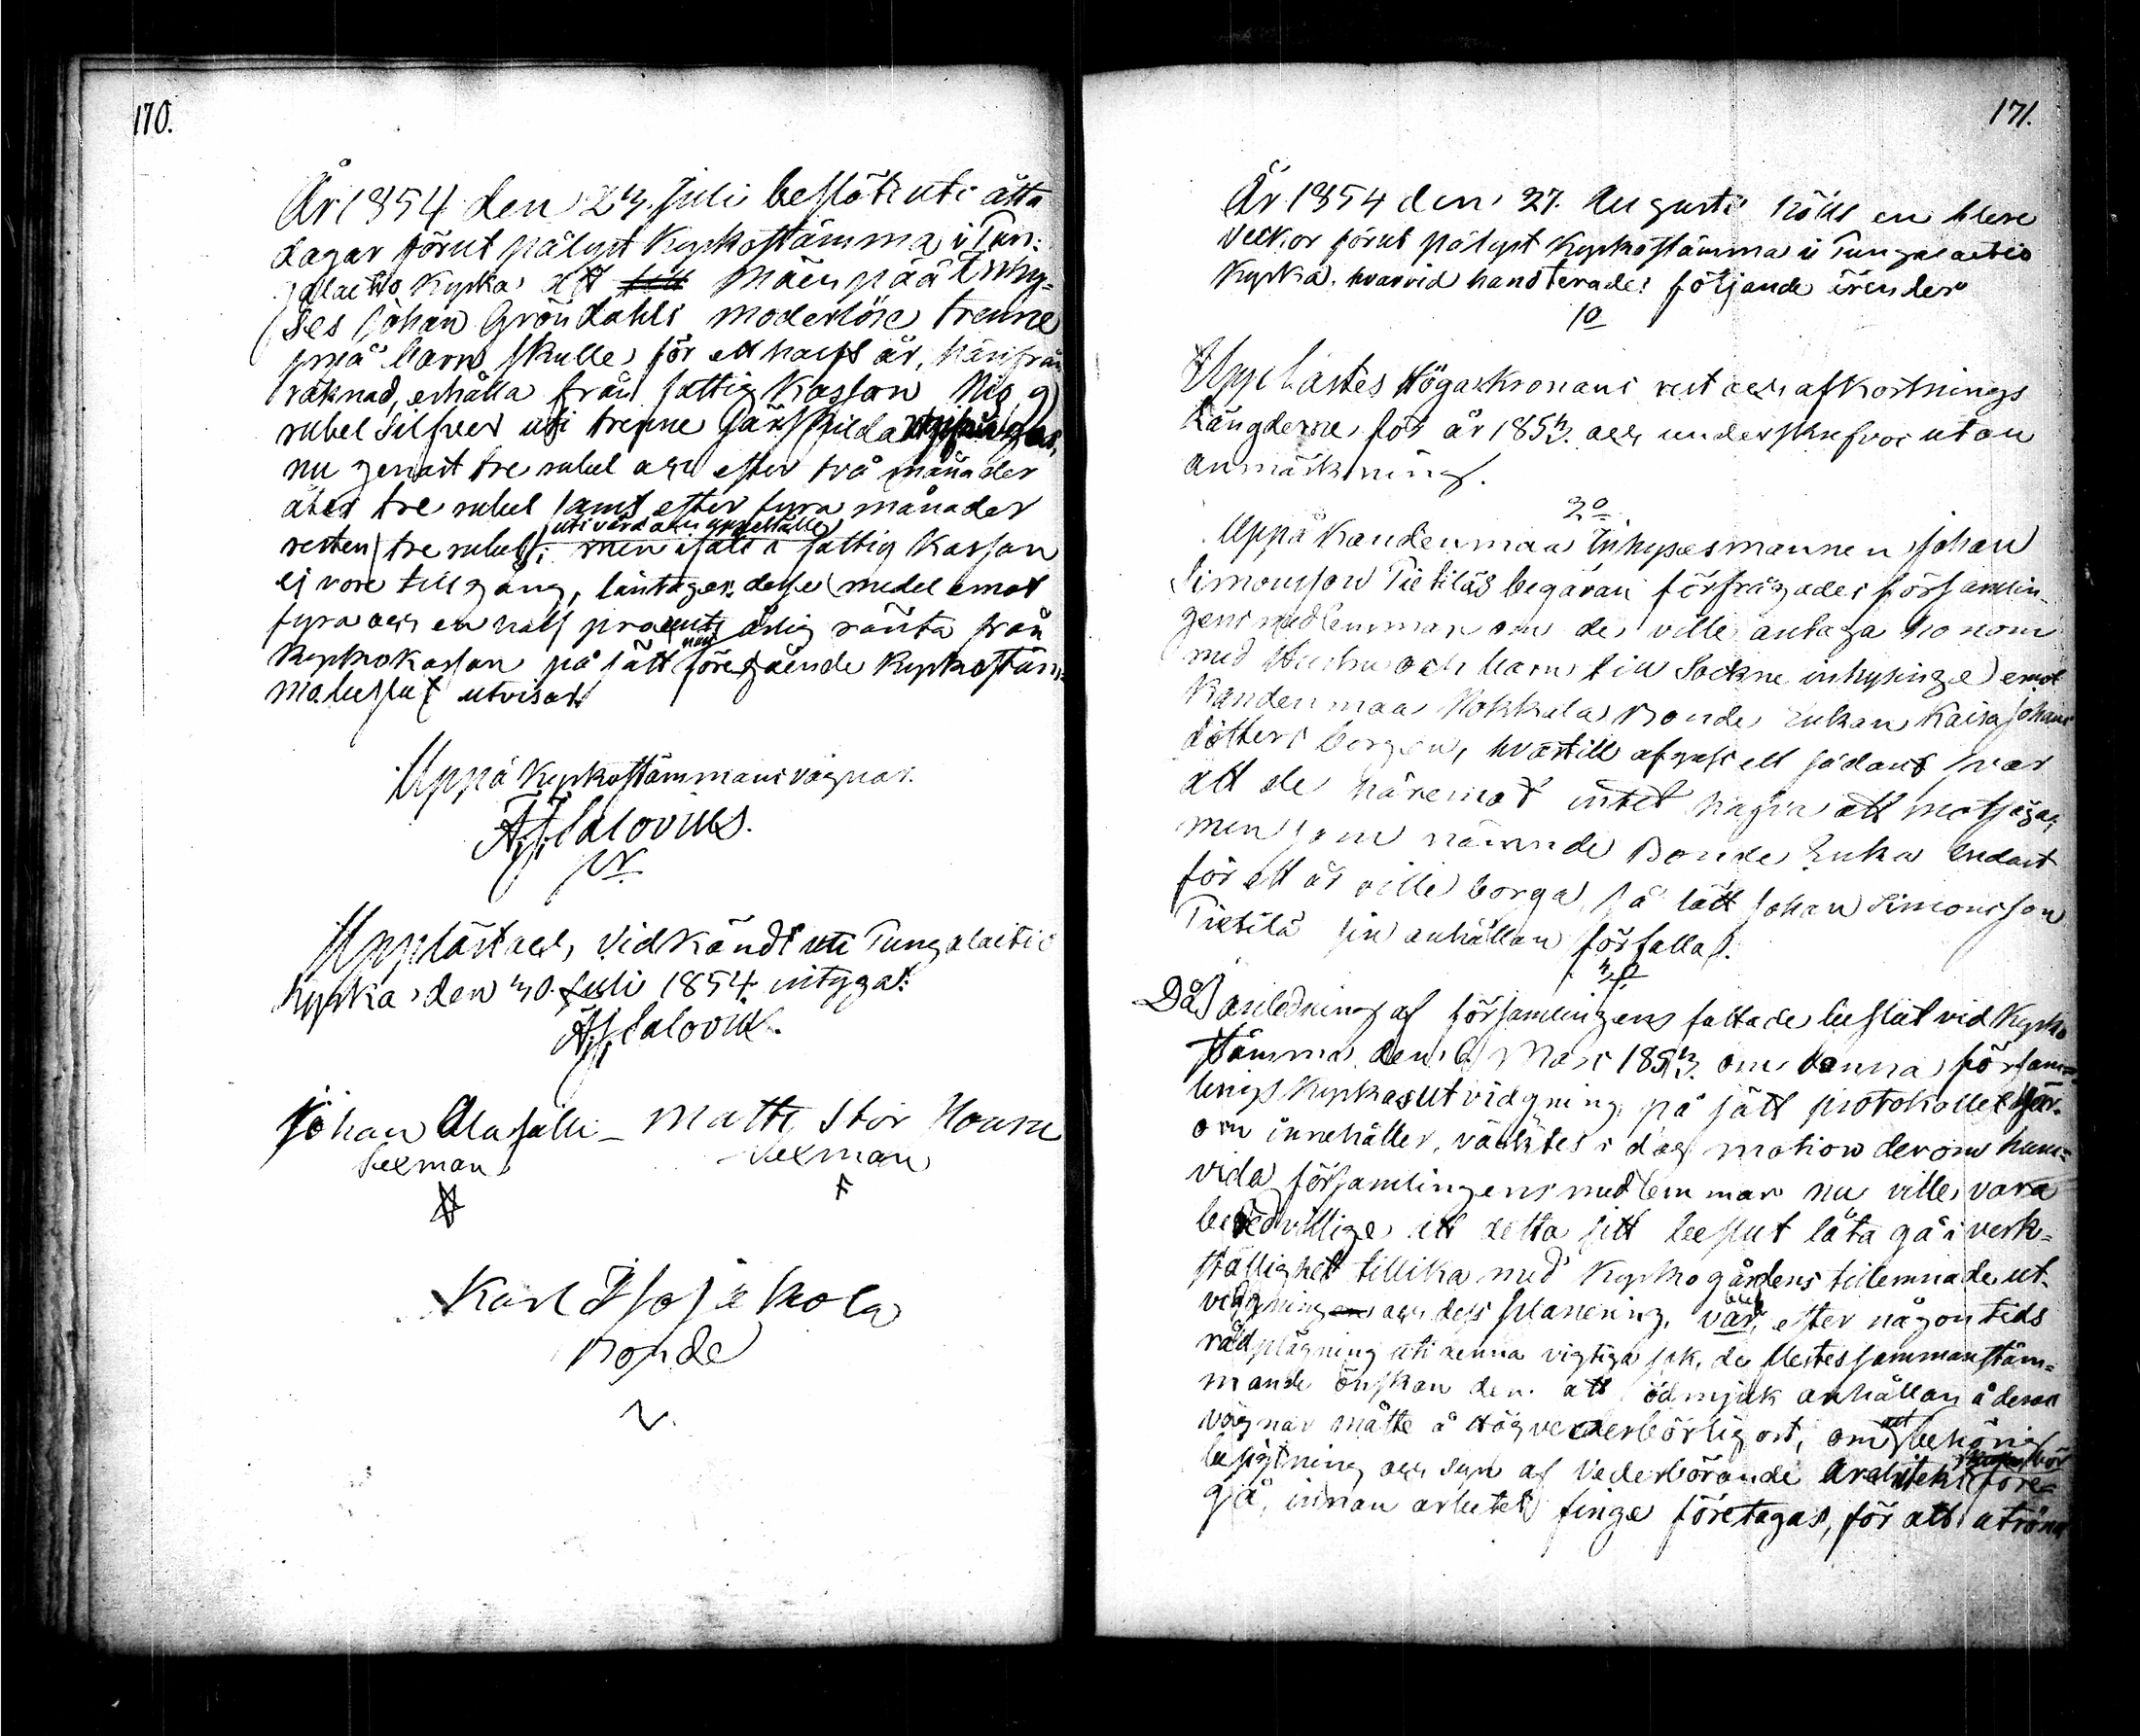 170.
År 1854 den 23. Juli beslöts uti åtta
dagar förut pålyst Kyrkostämma i Tun-
galaitio Kyrka att Mäenpää Inhy-
ses Johan Gröndahls moderlöse trenne
små barn skulle för ett halft år, härifrån
räknad, erhålla från fattig Kassan Nio 9)
rubel Silfver uti trenne särskilda
nu genast tre rubel och efter två månader
åter tre rubel samt efter fyra månader
uti vård och uppehälle
resten tre rubel; men ifall i fattig Kassan
ej vore tillgång, låntages desse medel emot
fyra och en half procents årlig ränta från
Kyrkokassan på sätt föregående Kyrkostäm-
mobeslut utvisat.
Uppå Kyrkostämmans vägnar.
A. J. Salovius.
Uppläst och vidkändt uti Tungalaitio
Kyrka den 30. Juli 1854 intygar:
A. J. Salovius.
Johan Alasalli – Matts Stor Honru
Sexman Sexman
Karl Isojokola
Bonde
171.
År 1854 den 27. Augusti hölls en flere
veckor förut pålyst Kyrkostämma i Tungalaitio
Kyrka, hvarvid handterades följande ärender
1o
Upplästes Höga Kronans rest och afkortnings
Längderne för år 1853. och underskrefvos utan
anmärkning.
2o
Uppå Kandenmaa Inhysesmannen Johan
Simonsson Tietiläs begäran förfrågades församlin-
gens medlemmar om de ville antaga honom
med Hustru och barn till Sockne inhysinge emot
Kandenmaa Kokkala Bonde Enkan Kaisa Johans
dotters borgen, hvartill afgafs ett sådant svar
att de häremot intet hafva att motsäga;
men som nämnde Bonde Enka endast
för ett år ville borga, så lätt Johan Simonsson
Tietilä sin anhållan förfalla.
3o
Då i anledning af församlingens fattade beslut vid Kyrko
stämma den 6 Mars 1853. om denna försam-
lings Kyrkas utvidgning på sätt protokollet här-
om innehåller, väcktes i dag motion derom huru-
vida församlingens medlemmar nu ville vara
beredvillige att detta sitt beslut låta gå i verk-
ställighet tillika med Kyrkogårdens tillernnade ut-
vidgning och dess planering, blef efter någon tids
rådplägning uti denna vigtiga sak, de flestes sammanstäm-
mande önskan den, att ödmjuk anhållan å deras
vägnar måtte å Högvederbörlig ort, om att behörig
besigtning och syn af Vederbörande Architekt före-
gå, innan arbetet finge företagas, för att utröna